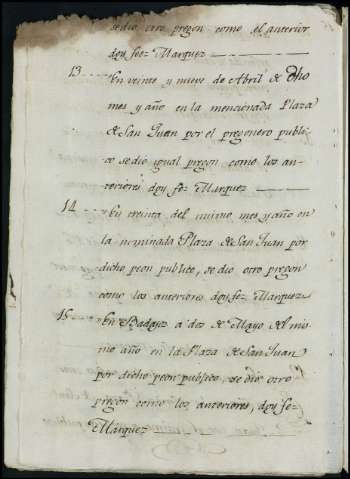 se dio otro pregon como el anterior
doy fee Marquez
13 En veinte y nueve de Abril de dho
mes y año en la mencionada Plaza
de San Juan por el pregonero publi-
co se dio igual pregon como los an-
teriores doy fee Marquez
14 En treinta del mismo mes y año en
la nominada Plaza de San Juan por
dicho peon publico, se dio otro pregon
como los anteriores doy fee Marquez
15 En Badajoz a dos de Mayo del mis-
mo año en la Plaza de San Juan
por dicho peon publico, se dio otro
pregon como los anteriores, doy fe-
Marquez